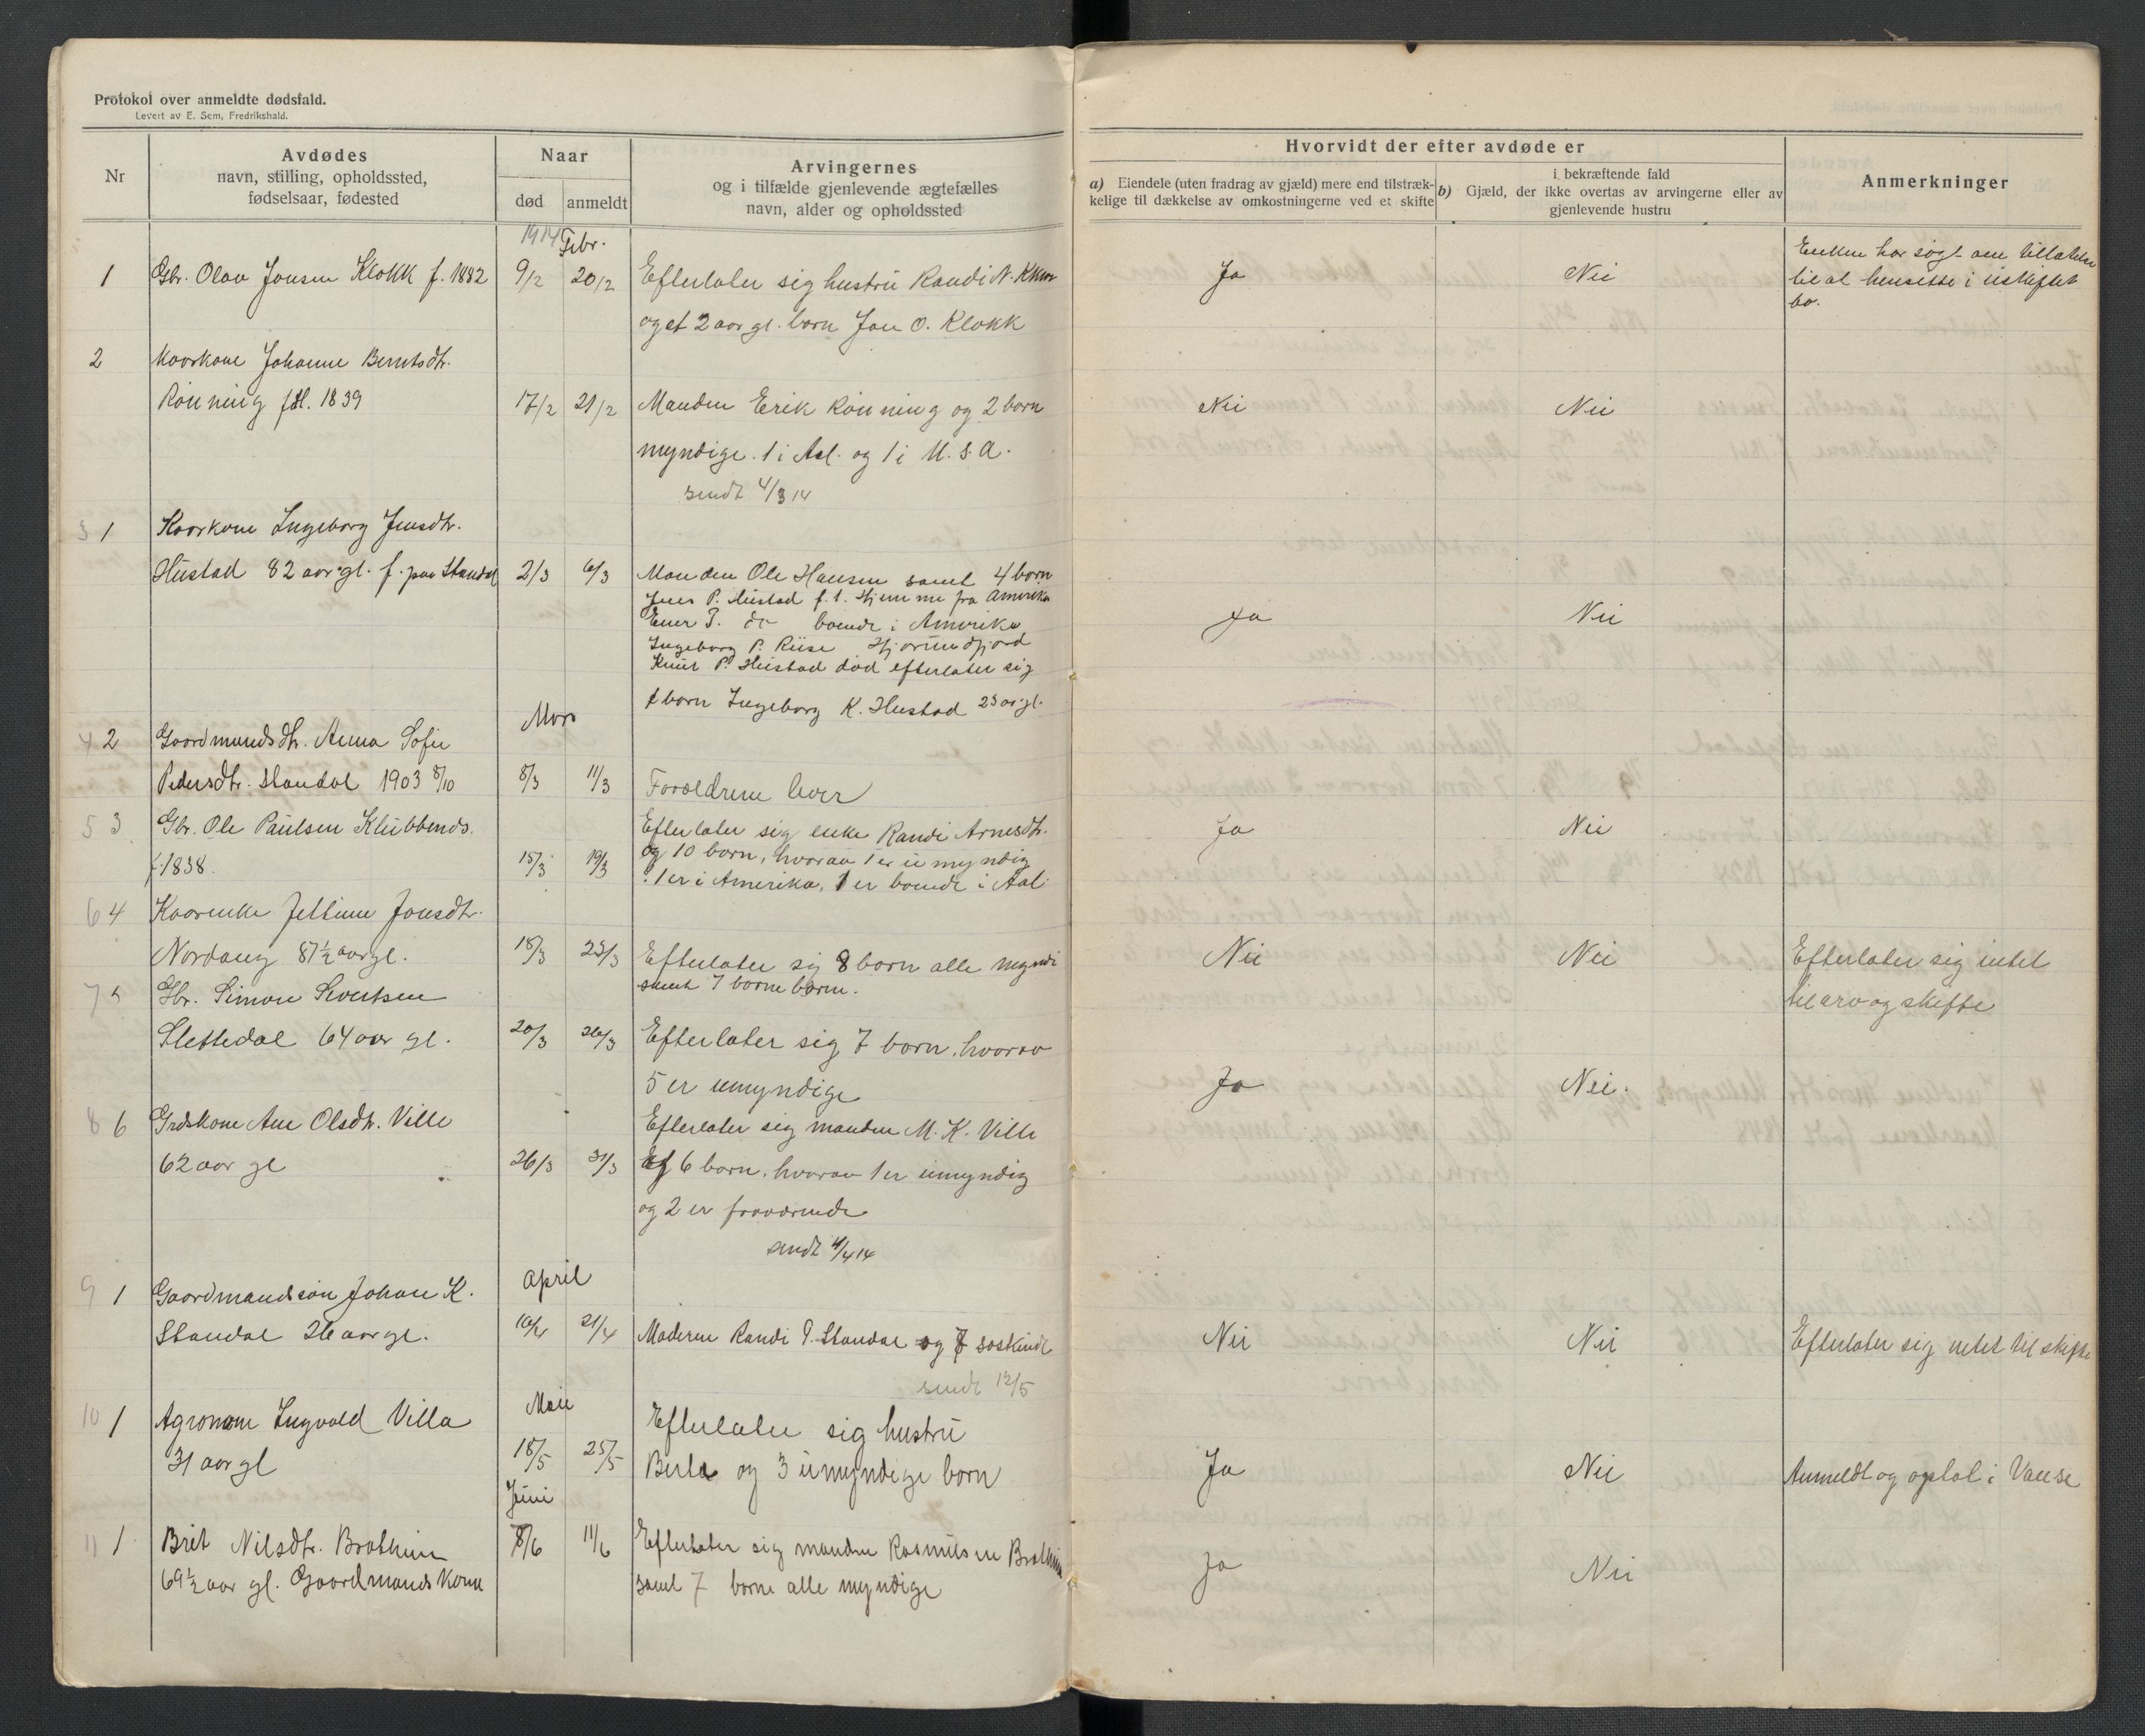 Protokol over anmeldte dødsfald.
Levert av E. Sem, Fredrikshald.
Nr
Avdødes
navn, stilling, opholdssted,
fødselsaar, fødested
Naar
død
anmeldt
Arvingernes
og i tilfælde gjenlevende ægtefælles
navn, alder og opholdssted
Hvorvidt der efter avdøde er
a) Eiendele (uten fradrag av gjæld) mere end tilstræk-
kelige til dækkelse av omkostningerne ved et skifte
i bekræftende fald
b) Gjæld, der ikke overtas av arvingerne eller av
gjenlevende hustru
Anmerkninger
1914 Febr.
1 Gbr. Olav Jonsen Klokk f. 1882 9/2 20/2 Efterlater sig hustru Randi N. Ja Nei Enken har søgt om tillatelse
og et 2 aar gl. barn Jon O. Klokk til at hensette i uskiftet
bo.
2 Kaarkone Johanne Berntsdtr.
Rönning fød. 1839 17/2 21/2 Manden Erik Rönning og 2 born Nei Nei
myndige. 1 i Aal. og 1 i U.S.A.
sendt 4/3 14
3 1 Kaarkone Ingeborg Jensdtr.
Hustad 82 aar gl. f. paa Standal 2/3 6/3 Manden Ole Hansen samt 4 born
Jens P. Hustad f.t. Hjemme fra Amerika
P. do boende i Amerika Ja Nei
Ingeborg P. Riise Hjørundfjord
Knut P. Hustad død efterlater sig
1 born Ingeborg K. Hustad 23 aar gl.
Mars
4 2 Gaardmandsdtr. Anna Sofie
Pedersdtr. Standal 1903 8/10 8/3 11/3 Forældrene lever
5 3 Gbr. Ole Paulsen Klubbenes. Efterlater sig enke Randi Arnesdtr. Ja Nei
f. 1838. 15/3 19/3 og 10 born, hvorav 1 er umyndig
1 er i Amerika, 1 er boende i Aal.
6 4 Kaarenke Jettine Jonsdtr.
Nordang 87½ aar gl. 18/3 23/3 Efterlater sig 8 born alle myndi Nei Nei Efterlater sig intet
samt 7 borneborn. til arv og skifte
7 5 Gbr. Simon Sivertsen
Slettedal 64 aar gl. 20/3 26/3 Efterlater sig 7 born, hvorav
5 er umyndige Ja Nei.
8 6 Grdskone Ane Olsdtr. Ville Efterlater sig manden M. K. Ville
62 aar gl 26/3 31/3 og 6 born, hvorav 1 er umyndig
og 2 er fraværende
sendt 4/4 14
April
9 1 Gaardmandsøn Johan K.
Standal 26 aar gl. 10/4 21/4 Moderen Randi P. Standal og 7 søskende Nei Nei Efterlater sig intet til skifte
sendt 12/5
Mai
10 1 Agronom Ingvald Villa Efterlater sig hustru
31 aar gl 18/5 25/5 Berta og 3 umyndige born Ja Nei Anmeldt og opstat i Volda
Juni
11 1 Brit Nilsdtr. Brathein 8/6 11/6 Efterlater sig manden Rasmus Brathein Ja Nei
69½ aar gl. Gaardmands Kone samt 7 borne alle myndige